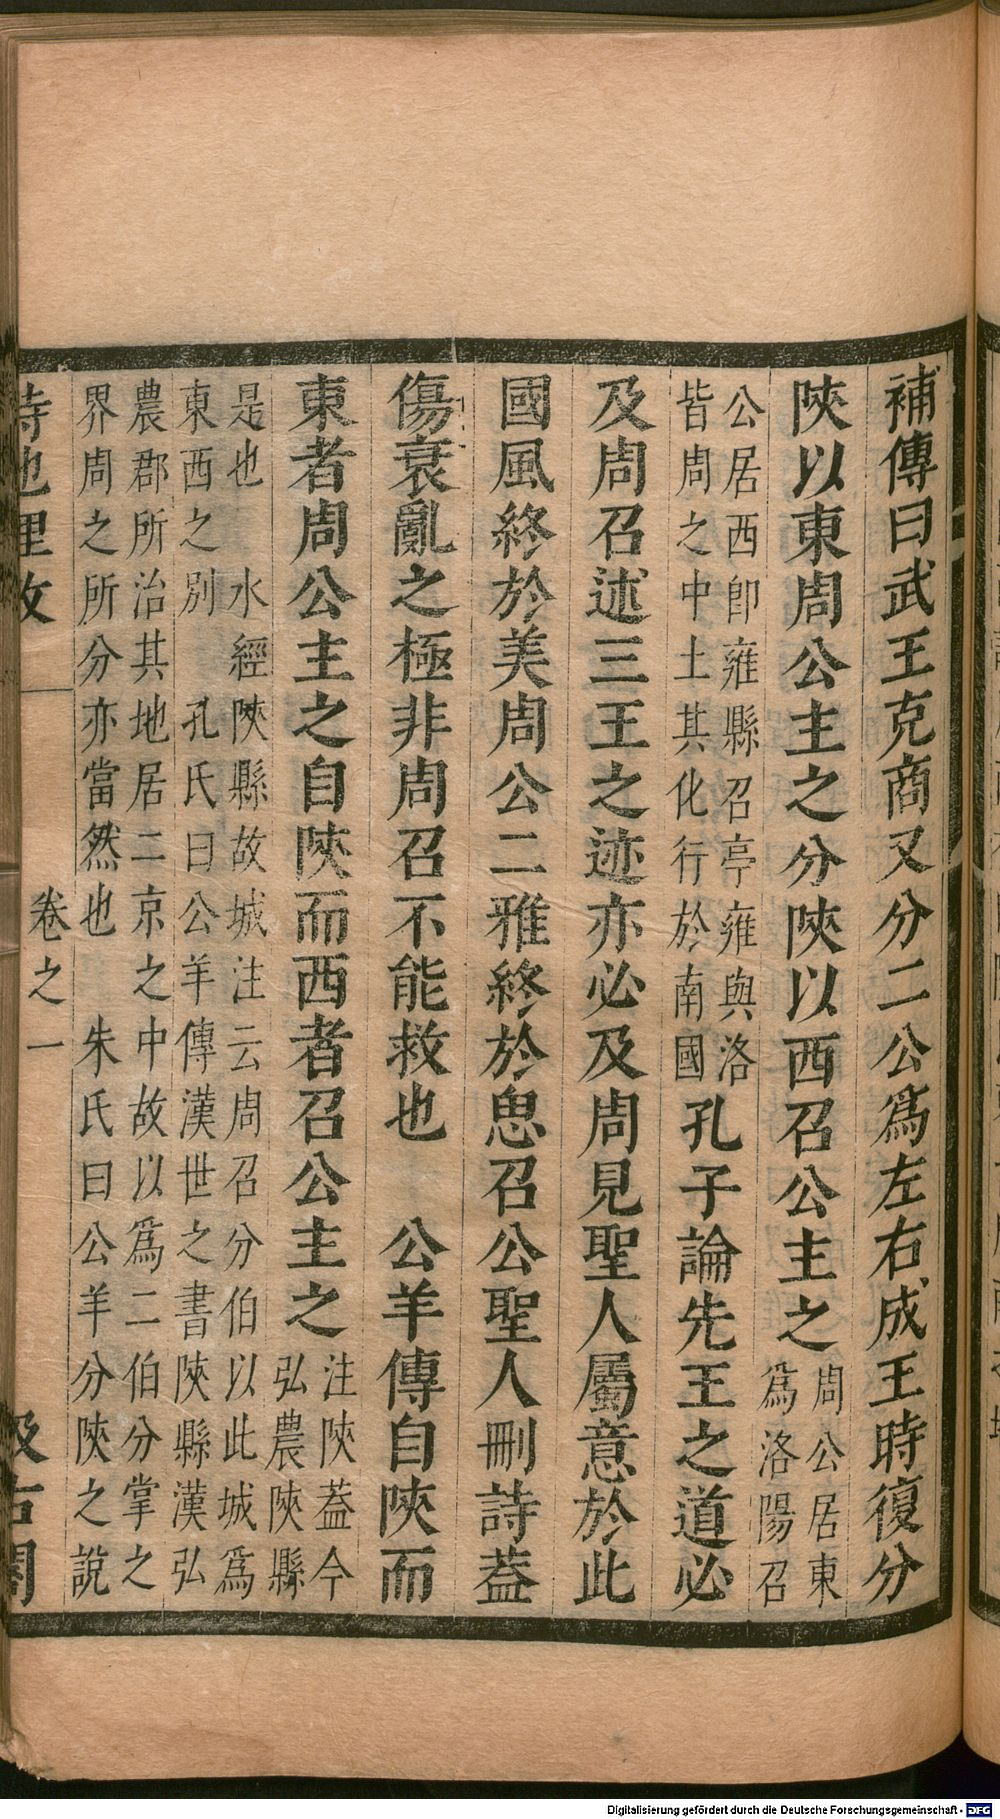 補傳曰武王克商又分二公爲左右成王時復分
陝以東周公主之分陝以西召公主之
周公居東
爲洛陽召
公居西卽雍縣召亭雍與洛
皆周之中土其化行於南國
孔子論先王之道必
及周召述三王之迹亦必及周見聖人屬意於此
國風終於美周公二雅終於思召公聖人刪詩葢
傷衰亂之極非周召不能救也 公羊傳自陝而
東者周公主之自陝而西者召公主之
注陝葢今
弘農陝縣
是也 水經陝縣故城注云周召分伯以此城爲
東西之別 孔氏曰公羊傳漢世之書陝縣漢弘
農郡所治其地居二京之中故以爲二伯分掌之
界周之所分亦當然也 朱氏曰公羊分陝之說
詩地里攷 卷之一 汲古閣
Digitalisierung gefördert durch die Deutsche Forschungsgemeinschaft - DFG